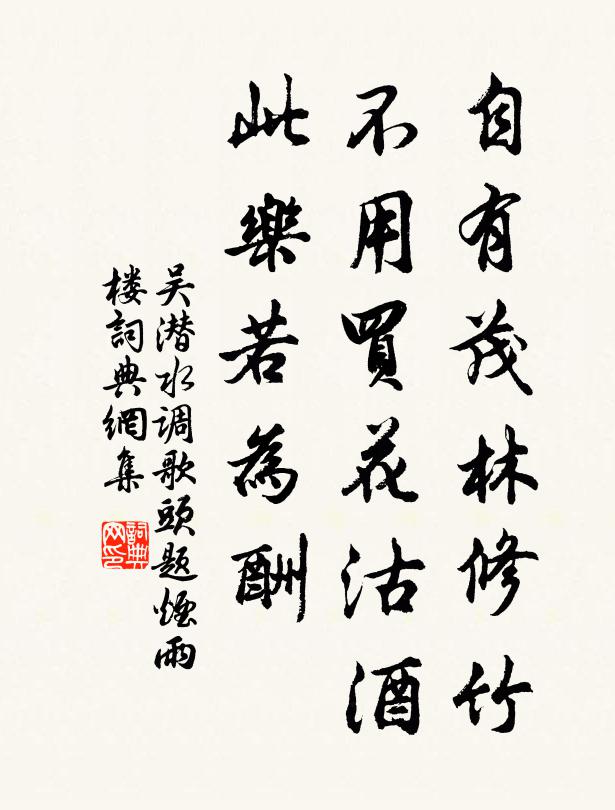 自有茂林修竹
不用買花沽酒
此樂若為酬
吴潜水调歌頭题煙雨
楼詞典網集
詞典
网印